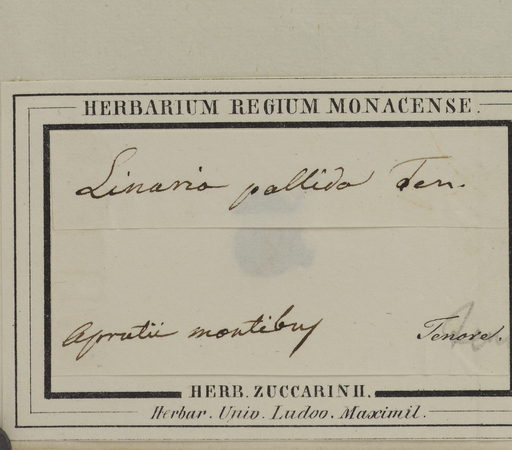 HERBARIUM REGIUM MONACENSE.
Linaria pallida Ten.
Aprutii montibus
Tenore.
HERB. ZUCCARINII.
Herbar. Univ. Ludov. Maximil.